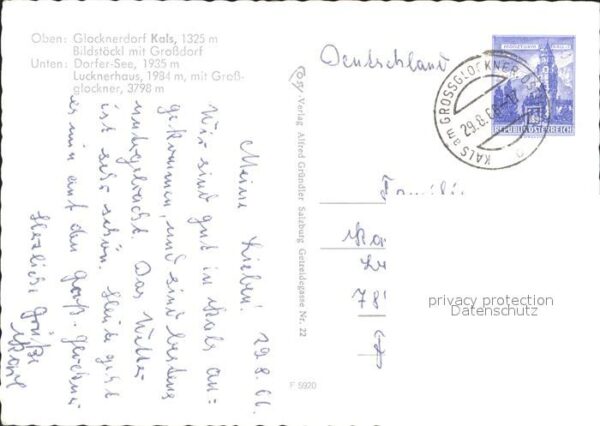 Oben: Glocknerdorf Kals, 1325 m
Bildstöckl mit Großdorf
Unten: Dorfer-See, 1935 m
Lucknerhaus, 1984 m, mit Groß-
glockner, 3798 m
Meine Lieben! 29.8.66.
Wir sind gut in Kals an=
gekommen, und sind bestens
untergebracht. Das Wetter
ist sehr schön. Heute geht
es mir auf den Groß-Glockner
Herzliche Grüße
Karl
Cosy-Verlag Alfred Gründler Salzburg Getreidegasse Nr. 22
F 5920
Deutschland
REPUBLIK ÖSTERREICH
KALS am GROSSGLOCKNER
29.8.66
Familie
Ka
78
privacy protection
Datenschutz